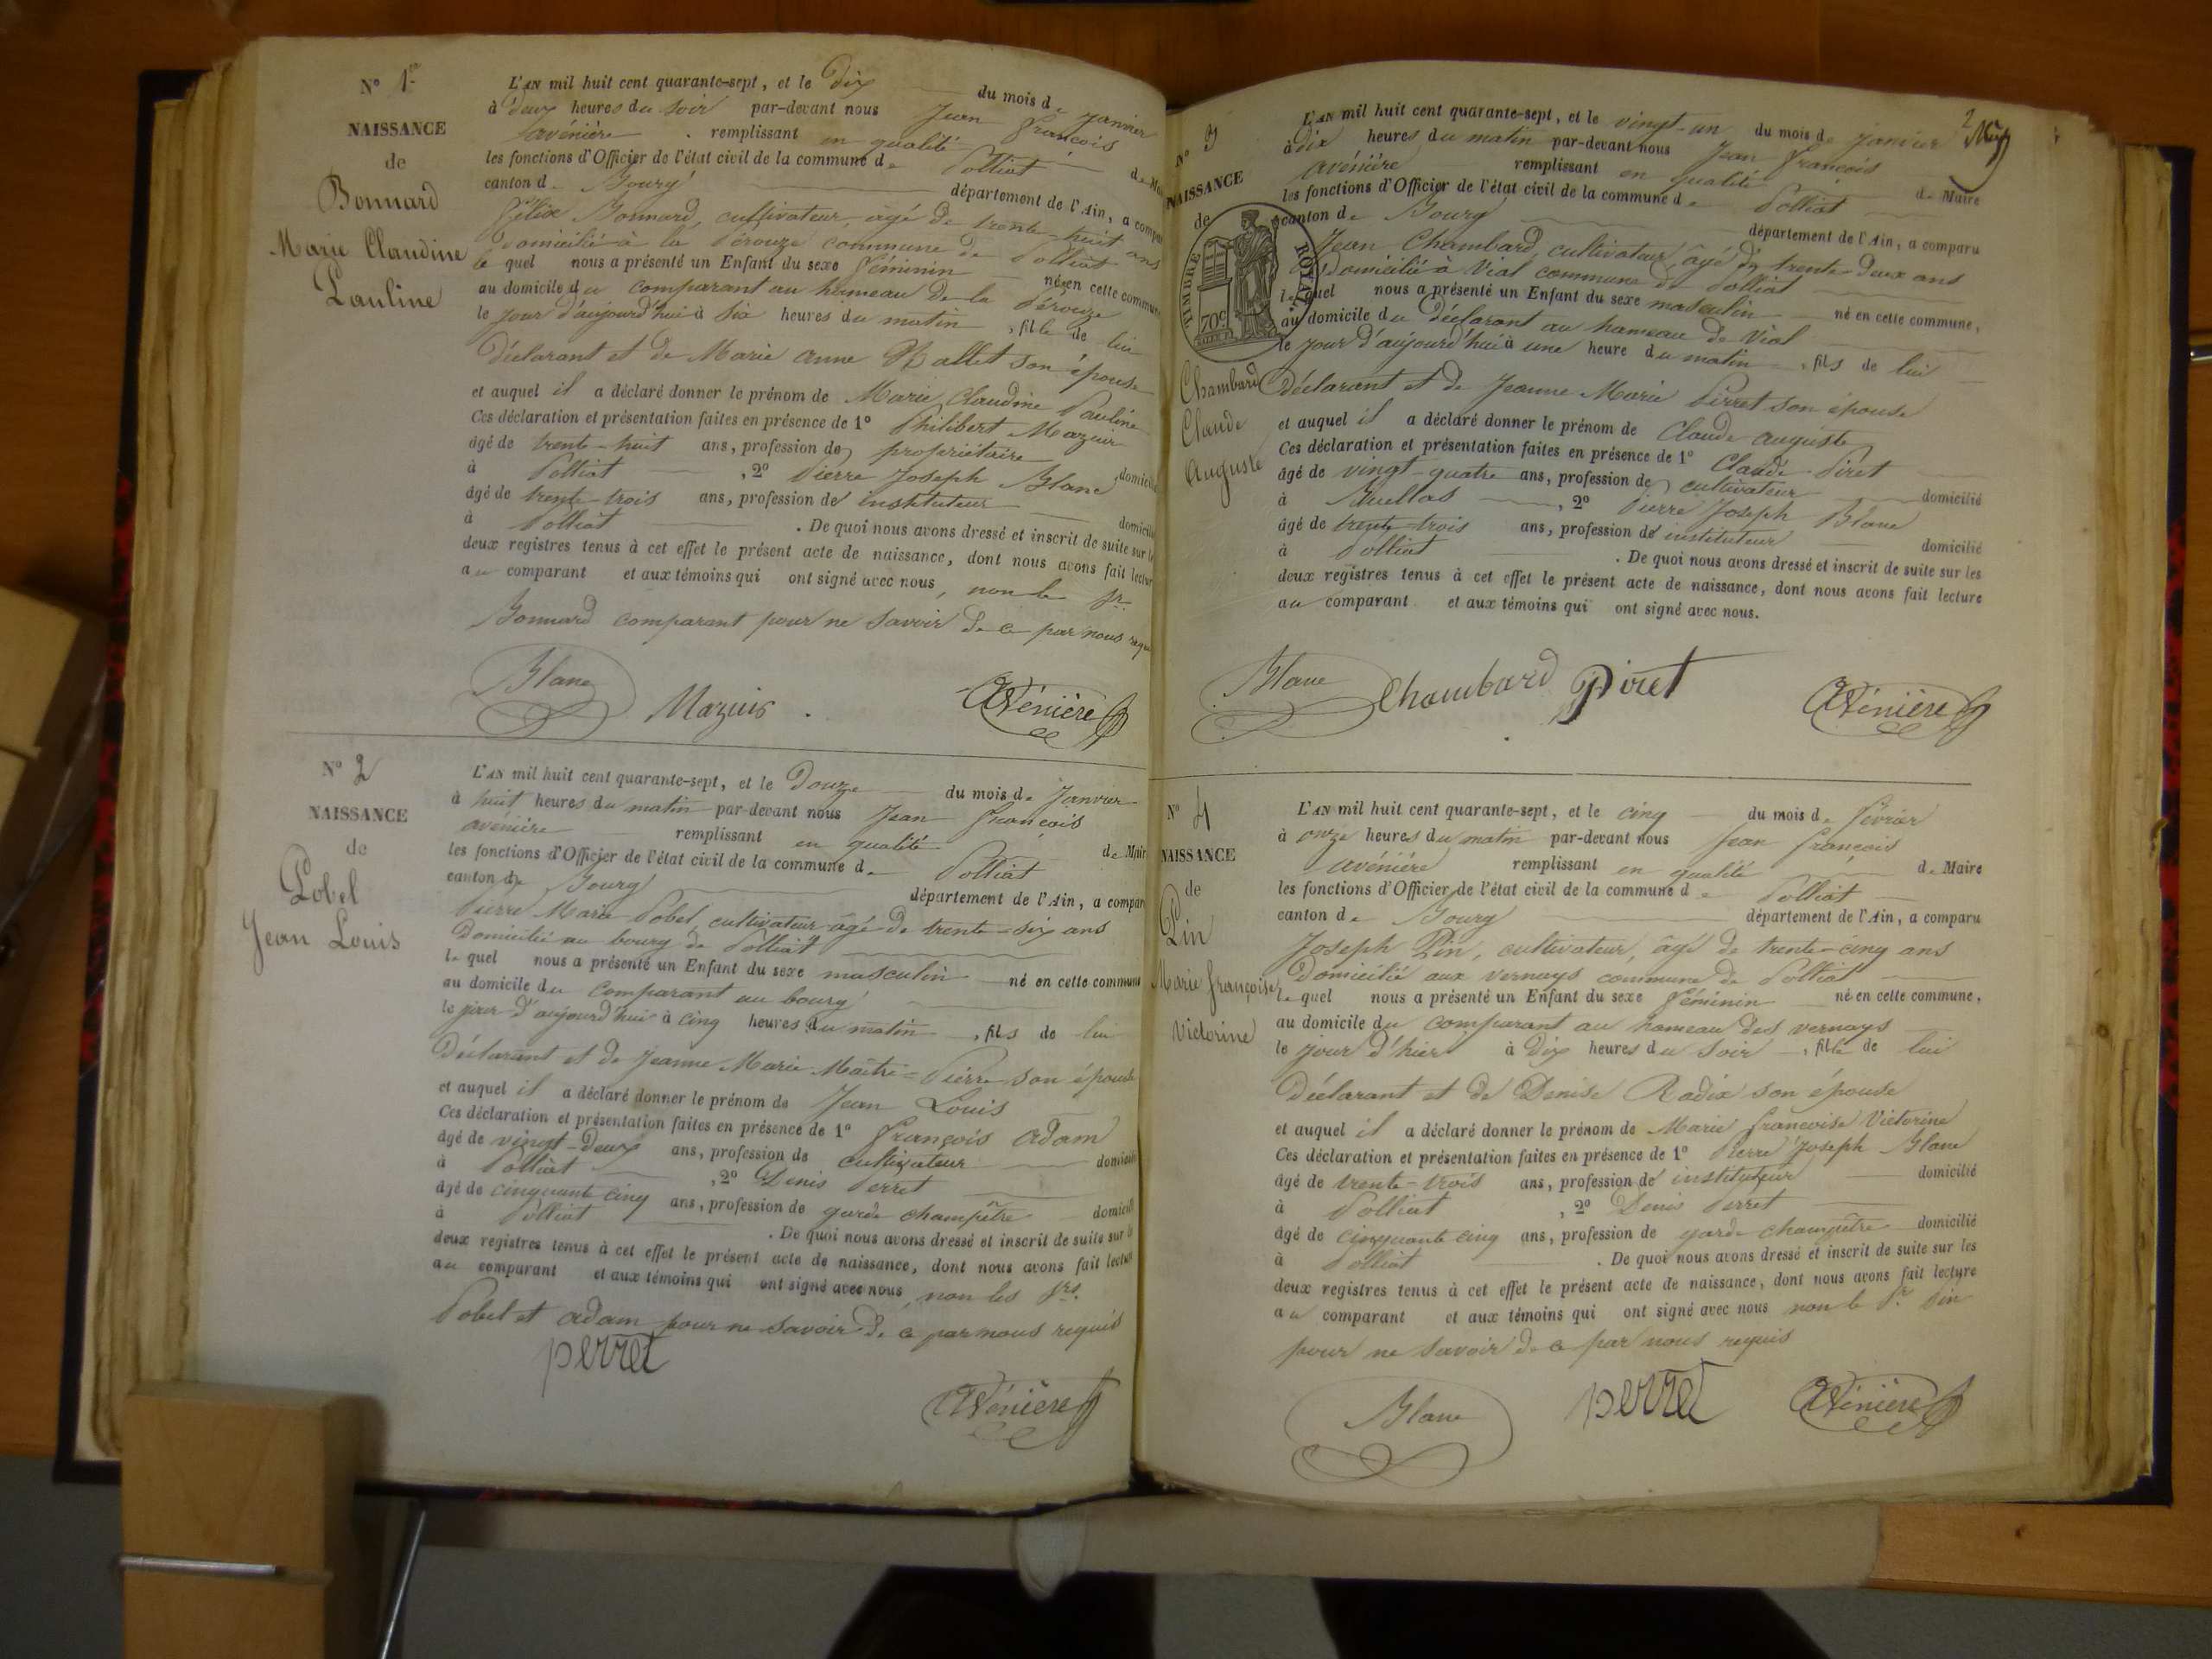 Nº 1er
NAISSANCE
de
Bonnard
Marie Claudine
Pauline
L'AN mil huit cent quarante-sept, et le dix du mois de janvier
à deux heures du soir par-devant nous Jean françois
avénière remplissant en qualité de Mai
les fonctions d'Officier de l'état civil de la commune de Polliat
canton de Bourg département de l'Ain, a compar
félix Bonnard, cultivateur, âgé de trente-huit ans
domicilié à la Pérouze commune de Polliat
le quel nous a présenté un Enfant du sexe féminin né en cette commune
au domicile du comparant au hameau de la Pérouze
le jour d'aujourd'hui à six heures du matin, fille de lui
déclarant et de Marie anne Vallet son épouse
et auquel il a déclaré donner le prénom de Marie Claudine Pauline
Ces déclaration et présentation faites en présence de 1º Philibert Mazuir
âgé de trente-huit ans, profession de propriétaire domicili
à Polliat, 2º Pierre Joseph Blanc
âgé de trente-trois ans, profession de instituteur domicili
à Polliat. De quoi nous avons dressé et inscrit de suite sur le
deux registres tenus à cet effet le présent acte de naissance, dont nous avons fait lectur
au comparant et aux témoins qui ont signé avec nous, non le Sr.
Bonnard comparant pour ne savoir de ce par nous requ
Blanc Mazuir. Avénière
Nº 2
NAISSANCE
de
Pobel
Jean Louis
L'AN mil huit cent quarante-sept, et le douze du mois de janvier
à huit heures du matin par-devant nous Jean françois
avénière remplissant en qualité de Mair
les fonctions d'Officier de l'état civil de la commune de Polliat
canton de Bourg département de l'Ain, a compar
Pierre Marie Pobel, cultivateur âgé de trente-six ans
domicilié au bourg de Polliat
le quel nous a présenté un Enfant du sexe masculin né en cette commune
au domicile du comparant au bourg
le jour d'aujourd'hui à cinq heures du matin, fils de lui
déclarant et de Jeanne Marie Maître-Pierre son épouse
et auquel il a déclaré donner le prénom de Jean Louis
Ces déclaration et présentation faites en présence de 1º françois adam
âgé de vingt-deux ans, profession de cultivateur domicili
à Polliat, 2º Denis Perret
âgé de cinquante cinq ans, profession de garde champêtre domicili
à Polliat. De quoi nous avons dressé et inscrit de suite sur le
deux registres tenus à cet effet le présent acte de naissance, dont nous avons fait lectur
au comparant et aux témoins qui ont signé avec nous, non les Srs.
Pobel et adam pour ne savoir de ce par nous requis
perret
Avénière
2
Nº 3
NAISSANCE
de
TIMBRE ROYAL
70c
Chambard
Claude
Auguste
L'AN mil huit cent quarante-sept, et le vingt-un du mois de janvier
à dix heures du matin par-devant nous Jean françois
avénière remplissant en qualité de Maire
les fonctions d'Officier de l'état civil de la commune de Polliat
canton de Bourg département de l'Ain, a comparu
Jean Chambard, cultivateur, âgé de trente-deux ans
domicilié à Vial commune de Polliat
le quel nous a présenté un Enfant du sexe masculin né en cette commune,
au domicile du déclarant au hameau de Vial
le jour d'aujourd'hui à une heure du matin, fils de lui
déclarant et de Jeanne Marie Pirret son épouse
et auquel il a déclaré donner le prénom de Claude auguste
Ces déclaration et présentation faites en présence de 1º Claude Piret
âgé de vingt-quatre ans, profession de cultivateur domicilié
à Buellas, 2º Pierre Joseph Blanc
âgé de trente-trois ans, profession de instituteur domicilié
à Polliat. De quoi nous avons dressé et inscrit de suite sur les
deux registres tenus à cet effet le présent acte de naissance, dont nous avons fait lecture
au comparant et aux témoins qui ont signé avec nous.
Blanc Chambard Piret Avénière
Nº 4
NAISSANCE
de
Pin
Marie françoise
Victorine
L'AN mil huit cent quarante-sept, et le cinq du mois de février
à onze heures du matin par-devant nous Jean françois
avénière remplissant en qualité de Maire
les fonctions d'Officier de l'état civil de la commune de Polliat
canton de Bourg département de l'Ain, a comparu
Joseph Pin, cultivateur, âgé de trente-cinq ans
domicilié aux vernays commune de Polliat
le quel nous a présenté un Enfant du sexe féminin né en cette commune,
au domicile du comparant au hameau des vernays
le jour d'hier à dix heures du soir, fille de lui
déclarant et de Denise Radix son épouse
et auquel il a déclaré donner le prénom de Marie françoise Victorine
Ces déclaration et présentation faites en présence de 1º Pierre Joseph Blanc
âgé de trente-trois ans, profession de instituteur domicilié
à Polliat, 2º Denis Perret
âgé de cinquante cinq ans, profession de garde champêtre domicilié
à Polliat. De quoi nous avons dressé et inscrit de suite sur les
deux registres tenus à cet effet le présent acte de naissance, dont nous avons fait lecture
au comparant et aux témoins qui ont signé avec nous non le Sr. Pin
pour ne savoir de ce par nous requis
Blanc perret Avénière